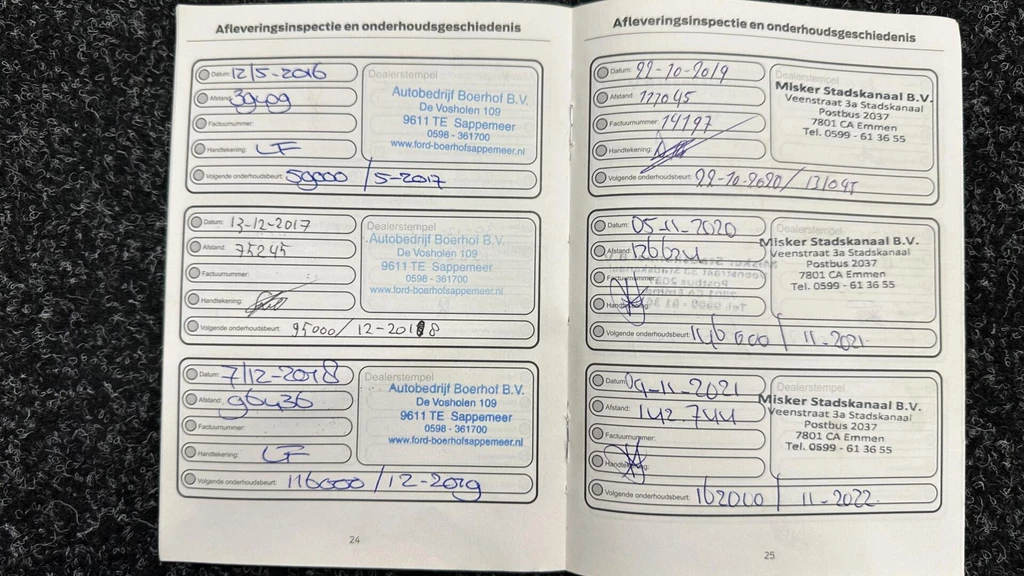 Afleveringsinspectie en onderhoudsgeschiedenis
Datum: 12/5-2016
Afstand: 39409
Factuurnummer:
Handtekening: LF
Volgende onderhoudsbeurt: 59000 / 5-2017
Dealerstempel
Autobedrijf Boerhof B.V.
De Vosholen 109
9611 TE Sappemeer
0598 - 361700
www.ford-boerhofsappemeer.nl
Datum: 13-12-2017
Afstand: 75245
Factuurnummer:
Handtekening:
Volgende onderhoudsbeurt: 95000 / 12-2018
Dealerstempel
Autobedrijf Boerhof B.V.
De Vosholen 109
9611 TE Sappemeer
0598 - 361700
www.ford-boerhofsappemeer.nl
Datum: 7/12-2018
Afstand: 96436
Factuurnummer:
Handtekening: LF
Volgende onderhoudsbeurt: 116000 / 12-2019
Dealerstempel
Autobedrijf Boerhof B.V.
De Vosholen 109
9611 TE Sappemeer
0598 - 361700
www.ford-boerhofsappemeer.nl
24
Afleveringsinspectie en onderhoudsgeschiedenis
Datum: 22-10-2019
Afstand: 111045
Factuurnummer: 14197
Handtekening:
Volgende onderhoudsbeurt: 22-10-2020 / 131045
Dealerstempel
Misker Stadskanaal B.V.
Veenstraat 3a Stadskanaal
Postbus 2037
7801 CA Emmen
Tel. 0599 - 61 36 55
Datum: 05-11-2020
Afstand: 126624
Factuurnummer:
Handtekening:
Volgende onderhoudsbeurt: 146000 / 11-2021.
Dealerstempel
Misker Stadskanaal B.V.
Veenstraat 3a Stadskanaal
Postbus 2037
7801 CA Emmen
Tel. 0599 - 61 36 55
Datum: 09-11-2021
Afstand: 142.744
Factuurnummer:
Handtekening:
Volgende onderhoudsbeurt: 162000 / 11-2022.
Dealerstempel
Misker Stadskanaal B.V.
Veenstraat 3a Stadskanaal
Postbus 2037
7801 CA Emmen
Tel. 0599 - 61 36 55
25